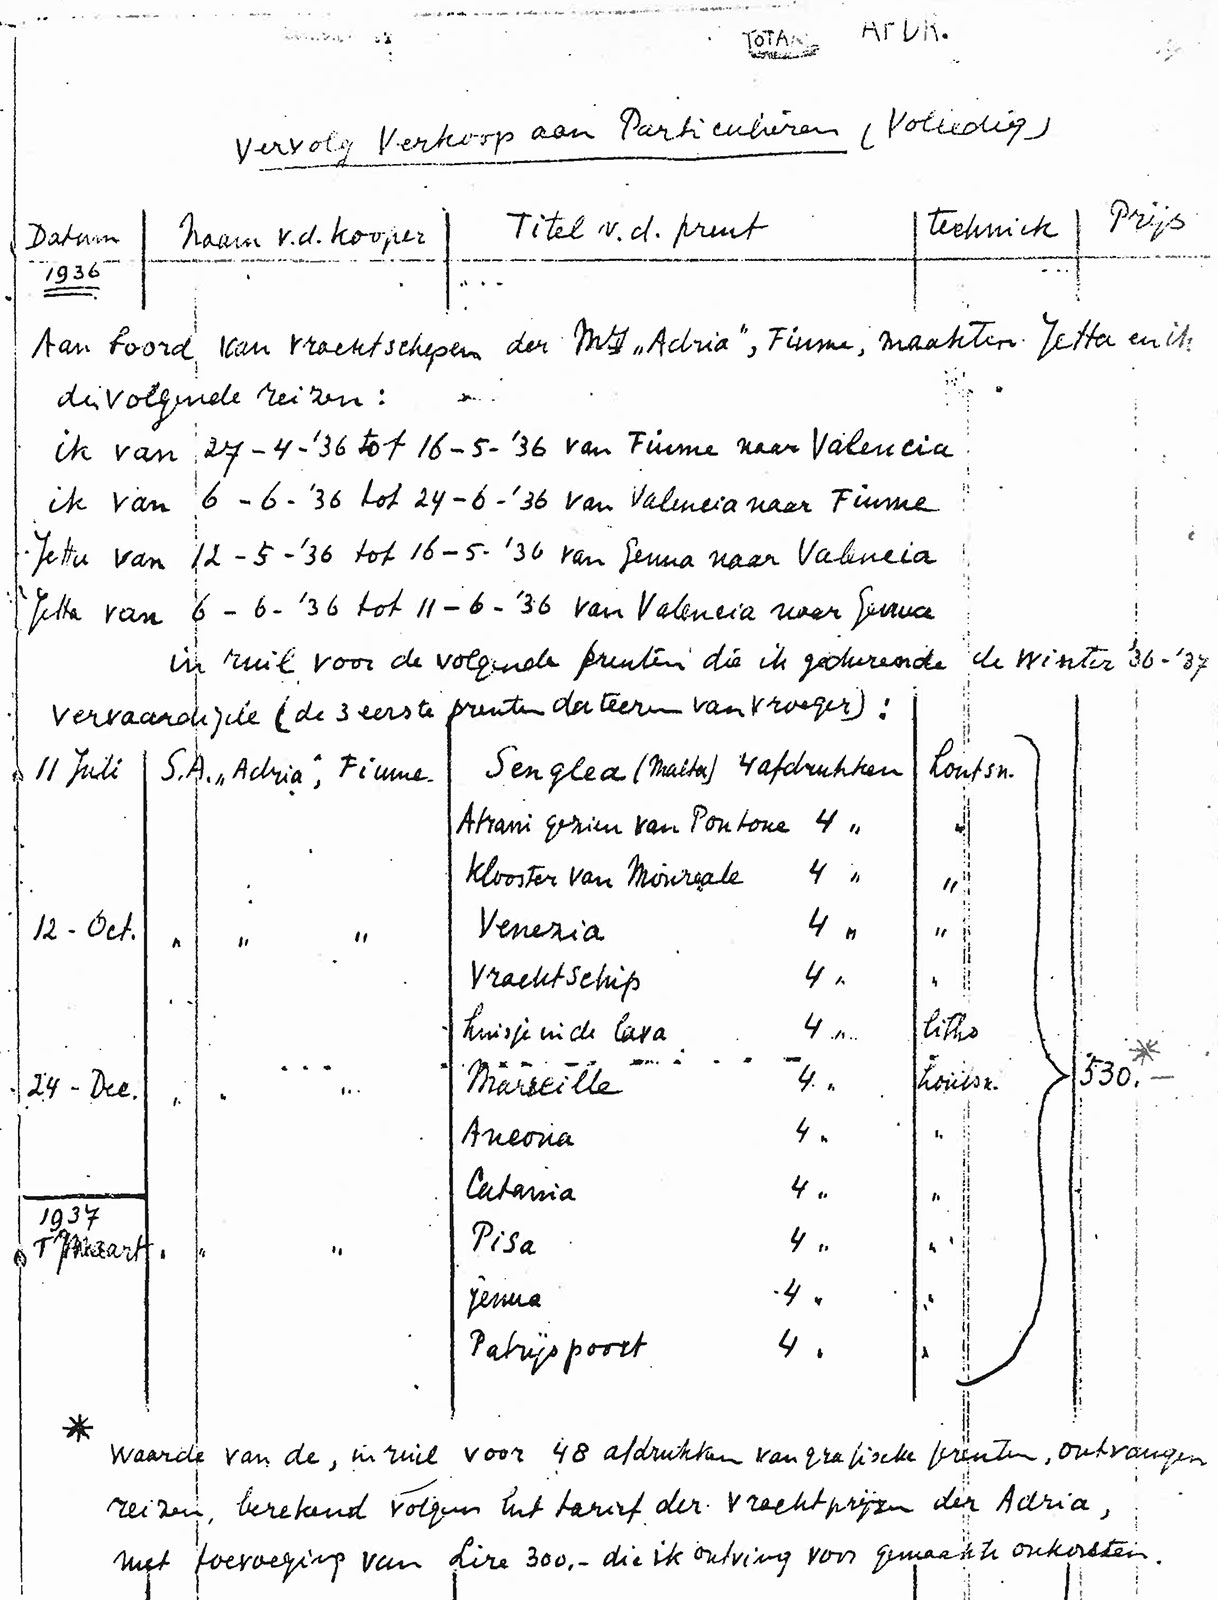 TOTAAL AFDR.
Vervolg Verkoop aan Particulieren (Volledig)
Datum Naam v.d. kooper Titel v.d. prent techniek Prijs
1936
Aan boord van vrachtschepen der Mij „Adria", Fiume, maakten Jetta en ik
de volgende reizen:
ik van 27-4-'36 tot 16-5-'36 van Fiume naar Valencia
ik van 6-6-'36 tot 24-6-'36 van Valencia naar Fiume
Jetta van 12-5-'36 tot 16-5-'36 van Genua naar Valencia
Jetta van 6-6-'36 tot 11-6-'36 van Valencia naar Genua
in ruil voor de volgende prenten die ik gedurende de winter '36-'37
vervaardigde (de 3 eerste prenten dateeren van vroeger):
11 Juli S.A. „Adria", Fiume. Senglea (Malta) 4 afdrukken houtsn.
Atrani gezien van Pontone 4 " "
Klooster van Monreale 4 " "
12 - Oct. " " " Venezia 4 " "
Vrachtschip 4 " "
huisje in de lava 4 " litho
24 - Dec. " " " Marseille 4 " houtsn. 530.* —
Ancona 4 " "
Catania 4 " "
1937
Maart " " " Pisa 4 " "
genua 4 " "
Patrijspoort 4 " "
* Waarde van de, in ruil voor 48 afdrukken van grafische prenten, ontvangen
reizen, berekend volgens het tarief der vrachtprijzen der Adria,
met toevoeging van Lire 300,- die ik ontving voor gemaakte onkosten.